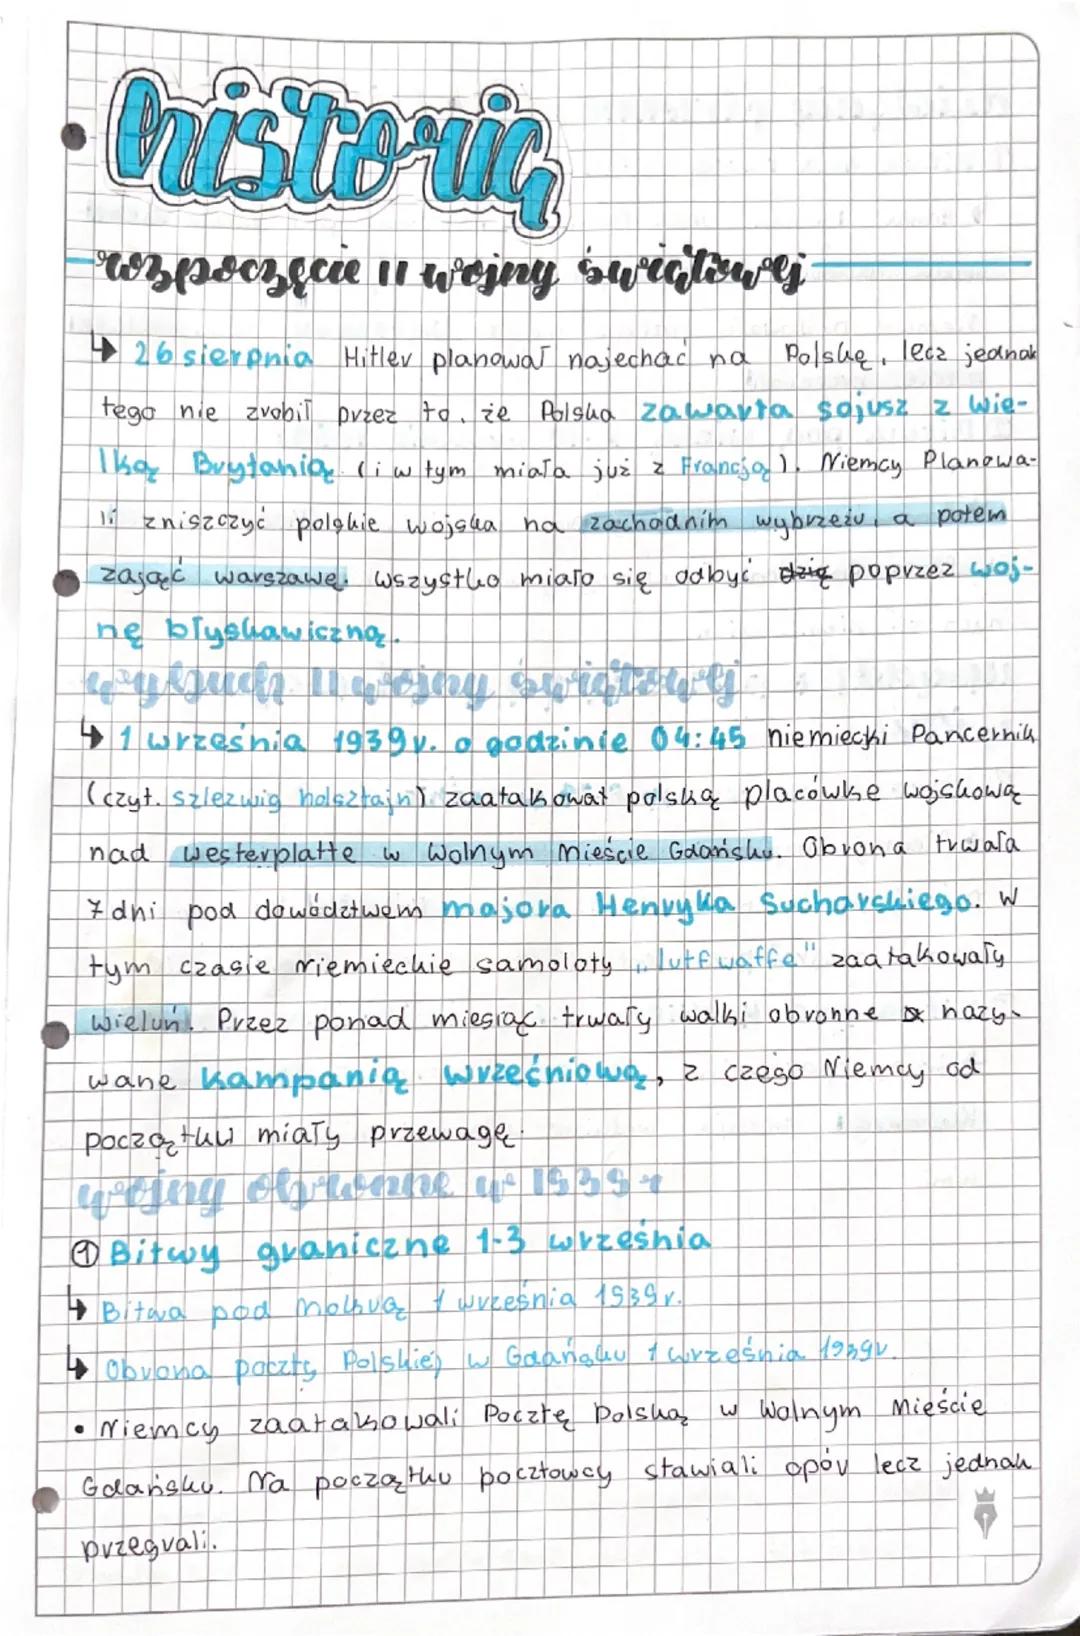 historia
rozpoczęcie II wojny światowej
↳ 26 sierpnia Hitler planował najechać na Polskę, lecz jednak
tego nie zrobił przez to, że Polska zawarła sojusz z Wie-
lką Brytanią (i w tym miała już z Francją). Niemcy Planowa-
li zniszczyć polskie wojska na zachodnim wybrzeżu, a potem
zająć warszawę. Wszystko miało się odbyć dzię poprzez woj-
nę błyskawiczną.
wybuch II wojny światowej
↳ 1 września 1939r. o godzinie 04:45 niemiecki Pancernik
(czyt. szlezwig holsztajn) zaatakował polską placówkę wojskową
nad westerplatte w Wolnym Mieście Gdańsku. Obrona trwała
7 dni pod dowództwem majora Henryka Sucharskiego. W
tym czasie niemieckie samoloty „lutfwaffe" zaatakowały
wieluń. Przez ponad miesiąc trwały walki obronne nazy-
wane kampanią wrześniową, z czego Niemcy od
początku miały przewagę.
wojny obronne w 1939 r
① Bitwy graniczne 1-3 września
↳ Bitwa pod Mokrą 1 września 1939r.
↳ Obrona poczty Polskiej w Gdańsku 1 września 1939r.
• Niemcy zaatakowali Pocztę Polską w Wolnym Mieście
Gdańsku. Na początku pocztowcy stawiali opór lecz jednak
przegrali.